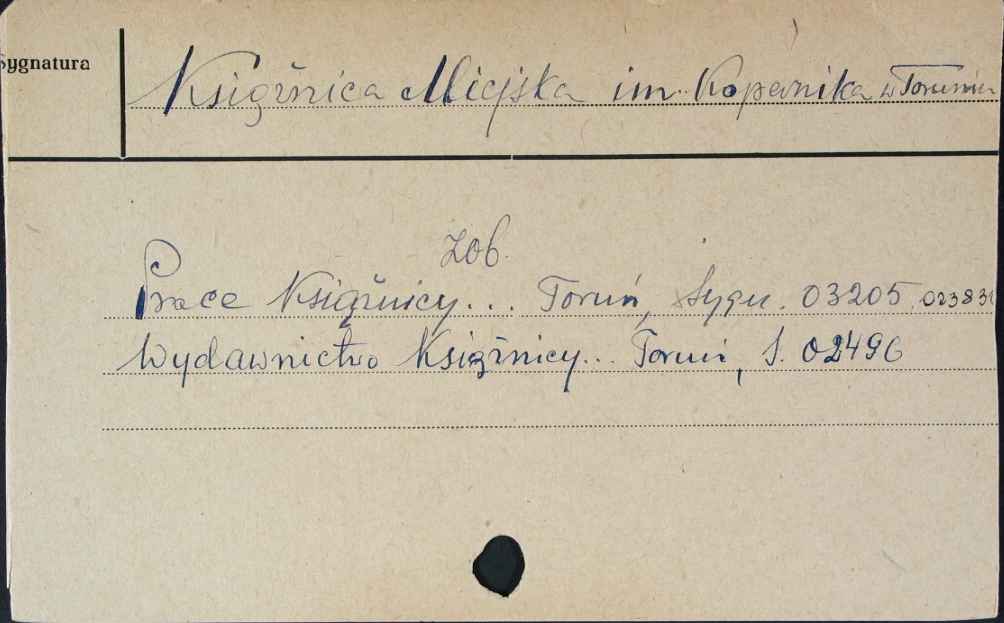 Sygnatura
Książnica Miejska im. Kopernika w Toruniu
zob.
Prace Książnicy... Toruń, Sygn. 03205, 023830
Wydawnictwo Książnicy... Toruń, S. 02496